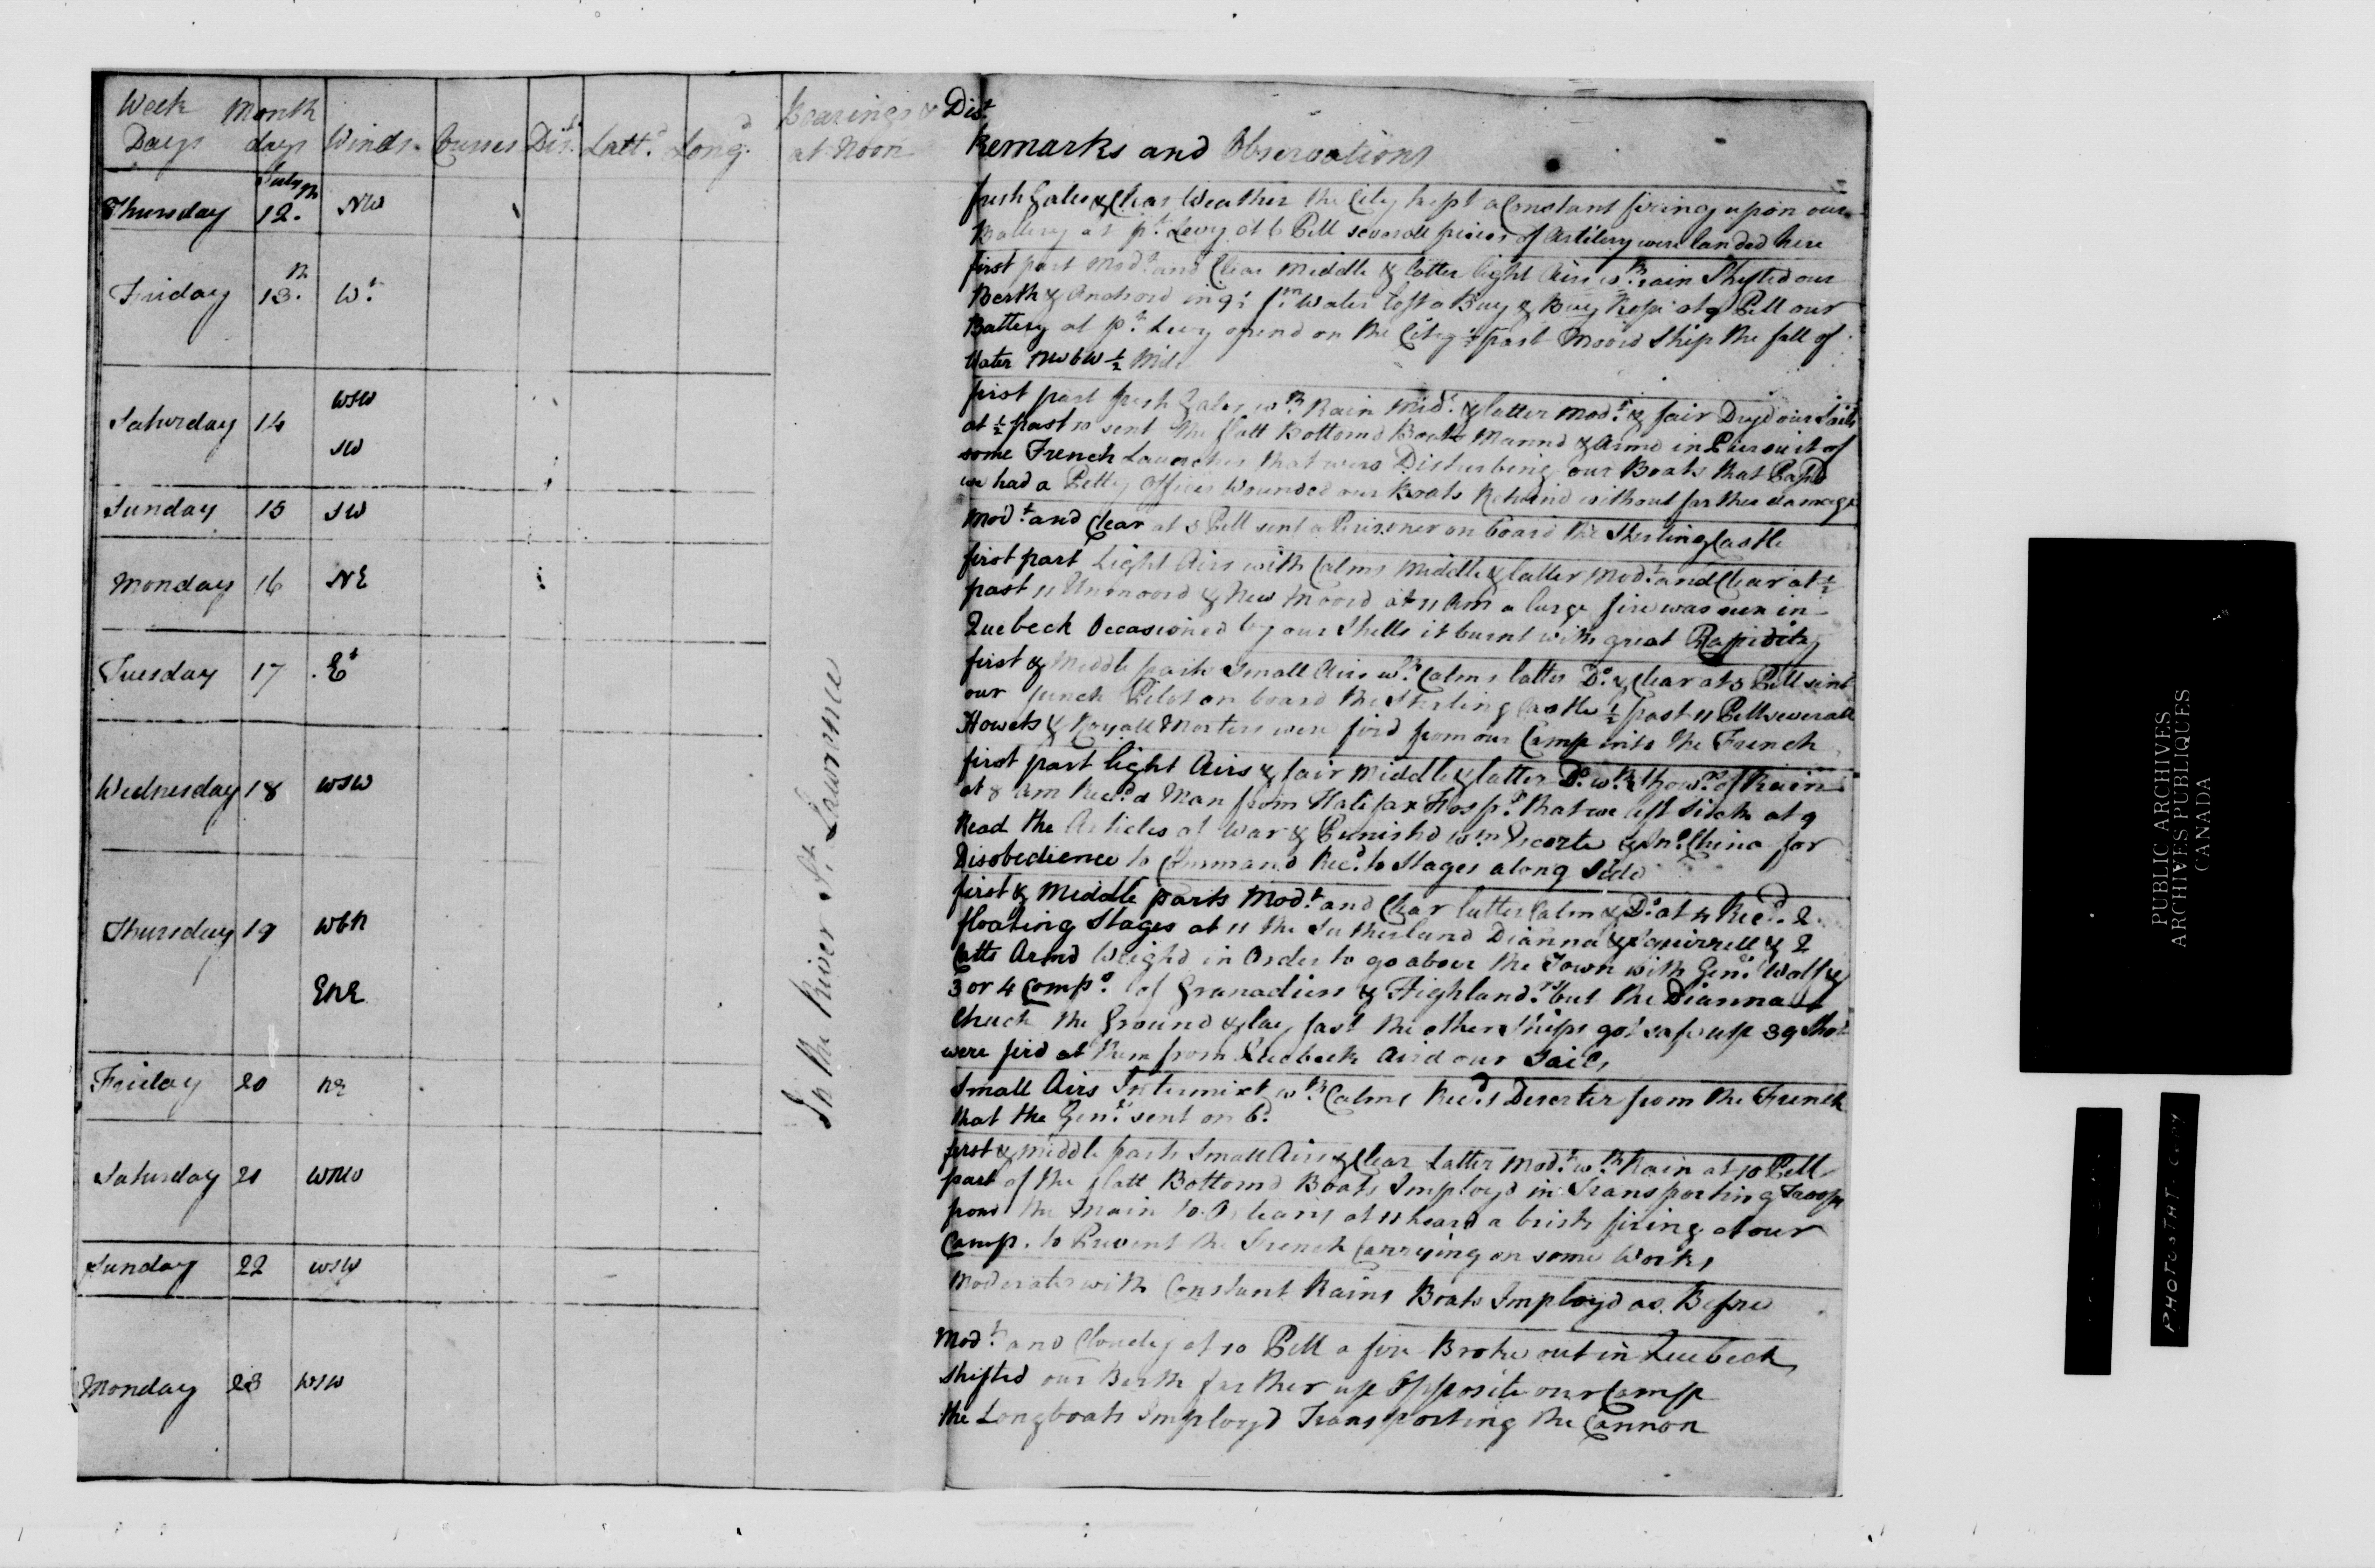 Week Days Month days Winds Courses Dist. Latt.d Long.d Bearings & Dist. at Noon Remarks and Observations
Thursday July 12.th NW
fresh Gales & Clear Weather the City kept a Constant firing upon our
Battery at pt. Levy at 6 PM severall pieces of Artilery were landed here
Friday 13.th Wt.
first part Modt. and Clear Middle & latter light Airs wth. rain Shifted our
Berth & Anchord in 9 fm. Water lost a Buoy & Buoy Rope at 9 PM our
Battery at pt. Levy opend on the City ½ past Moord Ship the fall of
Water NWbW ½ Mile
Saturday 14 WSW SW
first part fresh Gales wth. Rain Mid. & latter Modt. & fair Dryd our Sails
at ½ past 10 sent the flatt Bottomd Boats Mannd & Armd in Pursuit of
some French Launches that were Disturbing our Boats that Passd
we had a Petty Officer Wounded our Boats Returnd without farther damage
Sunday 15 SW
Modt. and Clear at 5 PM sent a Prisoner on board the Sterling Castle
Monday 16 NE
first part Light Airs with Calms Middle & latter Modt. and Clear at ½
past 11 Unmoord & New Moord at 11 AM a large fire was seen in
Quebeck Occasioned by our Shells it burnt with great Rapidity
Tuesday 17 Et
first & Middle parts Small Airs wth. Calms latter Do. & Clear at 5 PM sent
our french Pilot on board the Sterling Castle ½ past 11 PM severall
Howets & Royall Morters were fird from our Camp into the French
Wednesday 18 WSW
first part light Airs & fair Middle & latter Do. wth. Showrs. of Rain
at 8 AM Recd. a Man from Halifax Hospl. that we left Sick at 9
Read the Articles of War & Punishd Wm. & Jno. China for
Disobedience to Command Recd. 10 Stages along Side
Thursday 19 WbN ENE
first & Middle parts Modt. and Clear latter Calm & Do. at 4 Recd. 2
floating Stages at 11 the Sutherland Dianna & Squirrell & 2
Catts Armd Weighd in Order to go above the Town with Genl. Wolf &
3 or 4 Comps. of Granadiers & Highlandrs. but the Dianna
Struck the Ground & lay fast the other Ships got safe up 39 Shot
were fird at them from Quebeck Aird our Sails
Friday 20 NE
Small Airs Intermixt wth. Calms Recd. 1 Deserter from the French
that the Genl. sent on bd.
Saturday 21 WNW
first & middle parts Small Airs & Clear Latter Modt. wth. Rain at 10 PM
part of the flatt Bottomd Boats Imployd in Transporting Troops
from the Main to Orleans at 11 heard a brisk firing at our
Camp. to Prevent the French Carrying on some Works
Sunday 22 WSW
Moderate with Constant Rains Boats Imployd as Before
Monday 23 WSW
Modt. and Cloudy at 10 PM a fire Broke out in Quebeck
Shifted our Berth farther up Opposite our Camp
the Longboats Imployd Transporting the Cannon
In the River St. Lawrence
PUBLIC ARCHIVES
ARCHIVES PUBLIQUES
CANADA
PHOTOSTAT COPY